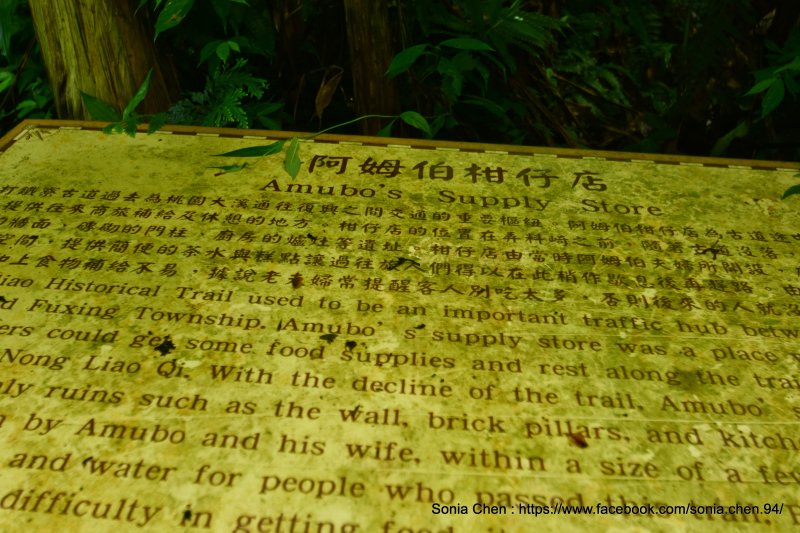 阿姆伯柑仔店
Amubo's Supply Store
打鐵寮古道過去為桃園大溪通往復興之間交通的重要樞紐。阿姆伯柑仔店為古道途
提供往來商旅補給及休憩的地方。柑仔店的位置在弄料崎之前。隨著古道沒落
牆面、磚砌的門柱、廚房的爐灶等遺址。柑仔店由當時阿姆伯夫婦所開設
空間，提供簡便的茶水與糕點讓過往旅人們得以在此稍作歇息後再趕路。
上食物補給不易，據說老夫婦常提醒客人別吃太多，否則後來的人就沒
iao Historical Trail used to be an important traffic hub betw
d Fuxing Township. Amubo's supply store was a place
ers could get some food supplies and rest along the trai
Nong Liao Qi. With the decline of the trail, Amubo' s
ly ruins such as the wall, brick pillars, and kitche
n by Amubo and his wife, within a size of a few
and water for people who passed this trail.
difficulty in getting food
Sonia Chen : https://www.facebook.com/sonia.chen.94/